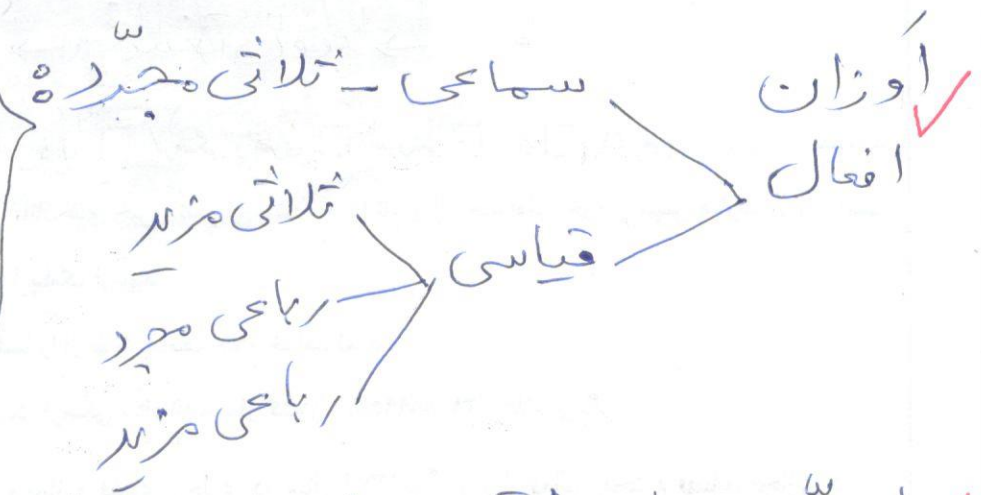 أوزان
افعال
سماعی - ثلاثی مجرّد:
قیاسی
ثلاثی مزید
رباعی مجرد
رباعی مزید